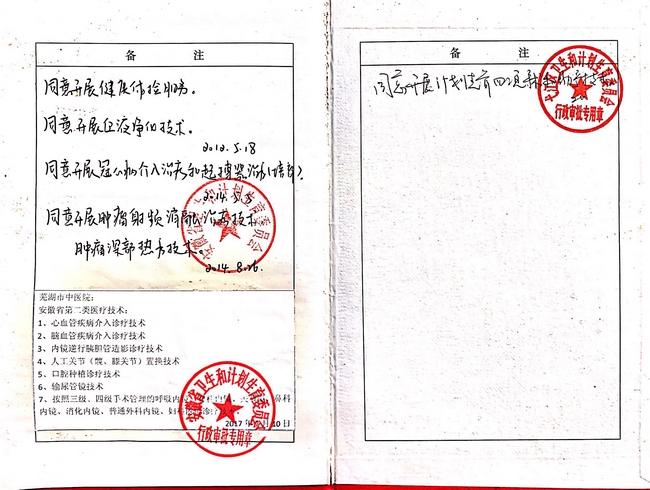 备 注
同意开展健康体检服务。
同意开展血液净化技术。
2012.5.18
同意开展冠心病介入治疗和起搏器治疗(
2014.5.5
同意开展肿瘤射频消融治疗技术
肿瘤深部热疗技术。
2014.8.26.
芜湖市中医院:
安徽省第二类医疗技术:
1、心血管疾病介入诊疗技术
2、脑血管疾病介入诊疗技术
3、内镜逆行胰胆管造影诊疗技术
4、人工关节(髋、膝关节)置换技术
5、口腔种植诊疗技术
6、输尿管镜技术
7、按照三级、四级手术管理的呼吸内镜、 鼻科
内镜、消化内镜、普通外科内镜、妇科 诊疗技术。
2017年 月10日
安徽省卫生和计划生育委员会
行政审批专用章
安徽省卫生和计划生育委员会
备 注
同意开展计划生育
卫生和计划生育委员会
行政审批专用章